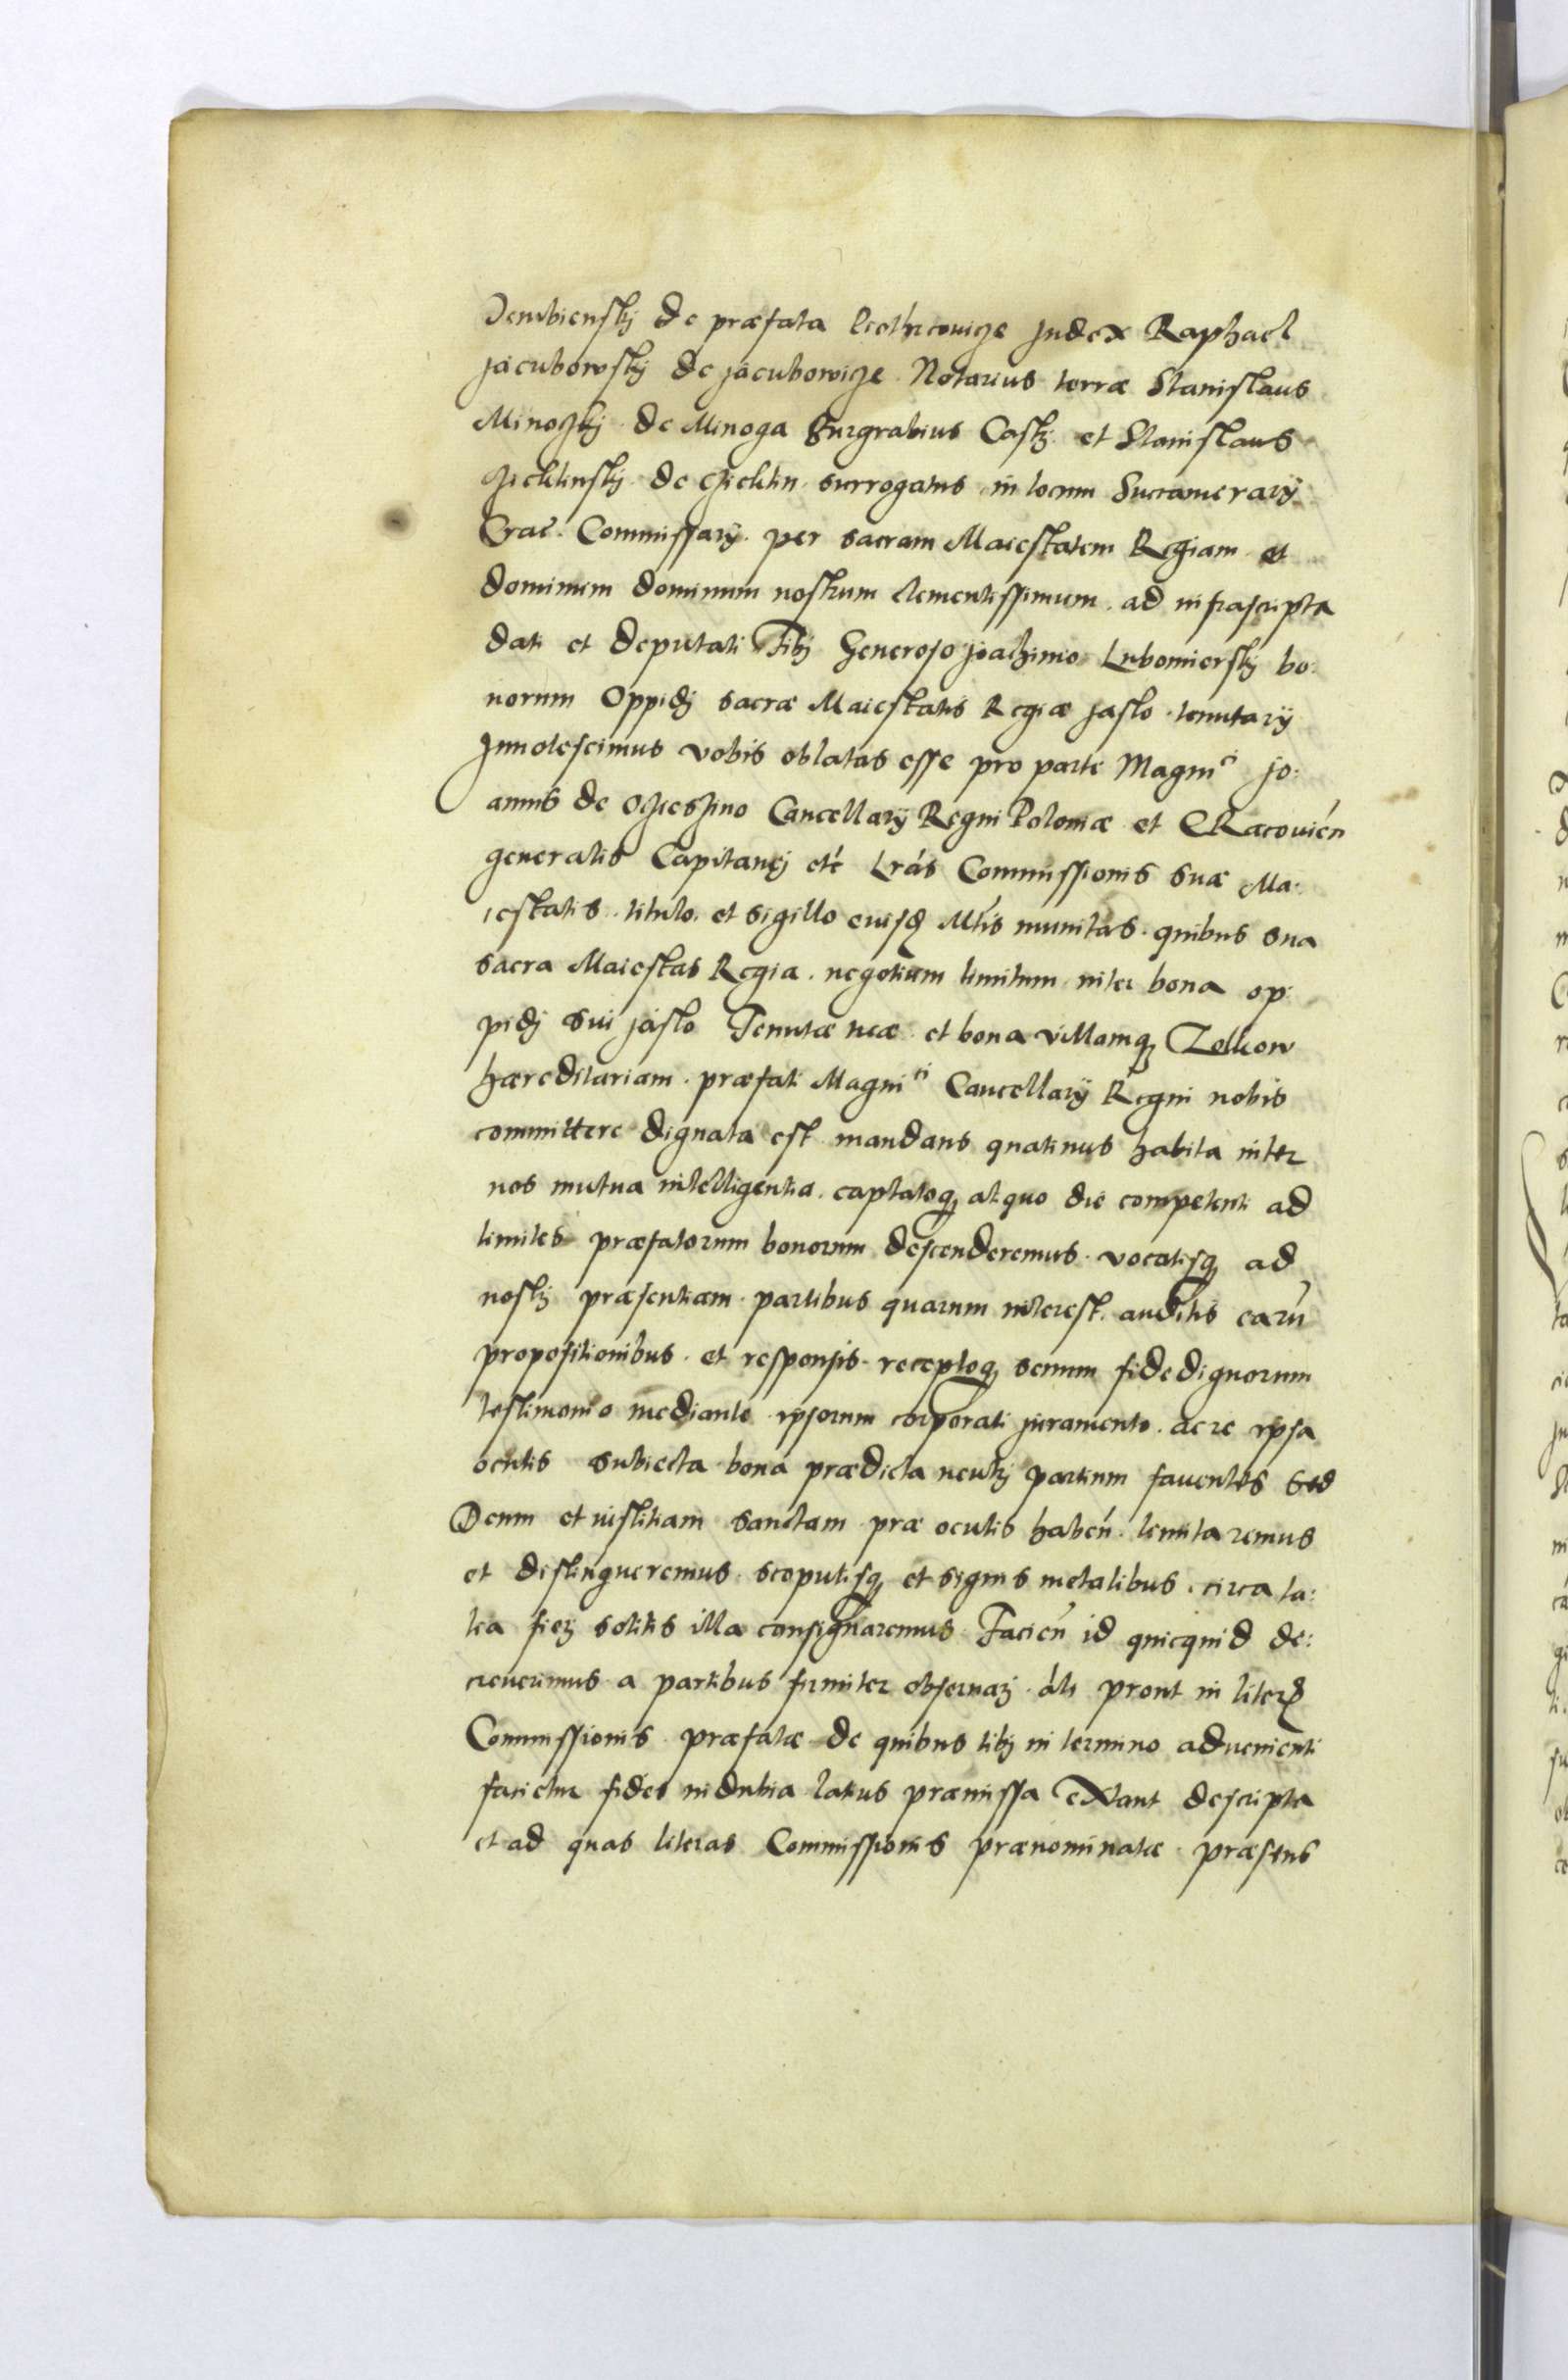 Dembienskj de præfata Piothrcovicze Judex Raphael
Jacubowskj de Jacubowicze Notarius terræ Stanislaus
Minoczkj de Minoga Burgrabius Castrj et Stanislaus
de surrogatus in locum Succamerarij
Crac. Commissarij per sacram Maiestatem Regiam et
dominum dominum nostrum clementissimum ad infrascripta
dati et deputati Tibj Generoso Joachimo Lubomierskj bo:
norum Oppidj sacræ Maiestatis Regiæ Jaslo tenutarij
Innotescimus vobis oblatas esse pro parte Magnci Jo:
annis de Oczieszino Cancellarij Regni Poloniæ et CRacovien
generalis Capitanej etc Lras Commissionis suæ Ma:
iestatis titulo et sigillo eiusdem Mtis munitas quibus sua
sacra Maiestas Regia negotium limitum inter bona op:
pidj sui Jaslo Tenutæ tuæ et bona villamque Zolkow
hæreditariam præfati Magnici Cancellarij Regni nobis
committere dignata est mandans quatinus habita inter
nos mutua intelligentia captatoque aliquo die competenti ad
limites præfatorum bonorum descenderemus vocatisque ad
nostrj præsentiam partibus quarum interest auditis earum
propositionibus et responsis receptoque senum fide dignorum
testimonio mediante ipsorum corporali juramento ac re ipsa
oculis subiecta bona prædicta neutrj partium faventes sed
Deum et iustitiam sanctam præ oculis haben limitaremus
et distingueremus scopulisque et signis metalibus circa ta:
lia fierj solitis illa consignaremus Facien id quicquid de:
creverimus a partibus firmiter observarj alr prout in literis
Commissionis præfatæ de quibus tibj in termino advenienti
facietur fides indubia latius præmissa eXtant descripta
et ad quas literas Commissionis prænominatæ præsens